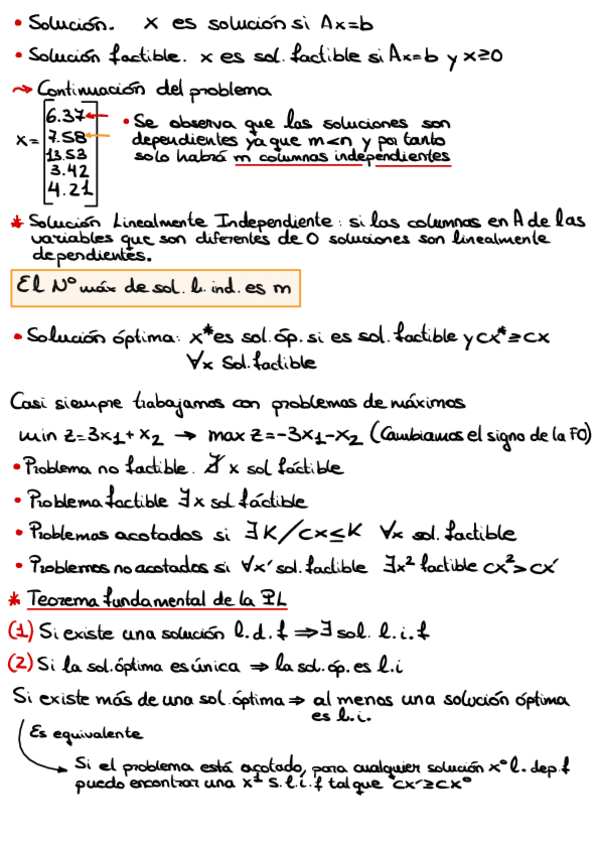 • Solución. x es solución si Ax=b
• Solución factible. x es sol. factible si Ax=b y x≥0
→ Continuación del problema
x= [6.37 7.58 13.53 3.42 4.21]
• Se observa que las soluciones son
dependientes ya que m<n y por tanto
solo habrá m columnas independientes
* Solución Linealmente Independiente: si las columnas en A de las
variables que son diferentes de 0 soluciones son linealmente
dependientes.
El Nº máx de sol. l. ind. es m
• Solución óptima: x* es sol. óp. si es sol. factible y cx* ≥ cx
∀x Sol. factible
Casi siempre trabajamos con problemas de máximos
min z=3x₁+x₂ → max z=-3x₁-x₂ (Cambiamos el signo de la FO)
• Problema no factible. ∄ x sol fáctible
• Problema factible ∃x sol fáctible
• Problemas acotados si ∃K/cx≤K ∀x sol. factible
• Problemas no acotados si ∀x' sol. factible ∃x² factible cx²>cx'
* Teorema fundamental de la PL
(1) Si existe una solución l.d.f ⇒ ∃ sol. l.i.f
(2) Si la sol. óptima es única ⇒ la sol. óp. es l.i
Si existe más de una sol. óptima ⇒ al menos una solución óptima
es l.i.
Es equivalente
Si el problema está acotado, para cualquier solución x⁰ l. dep. f
puedo encontrar una x¹ s.l.i.f tal que cx'≥cx⁰